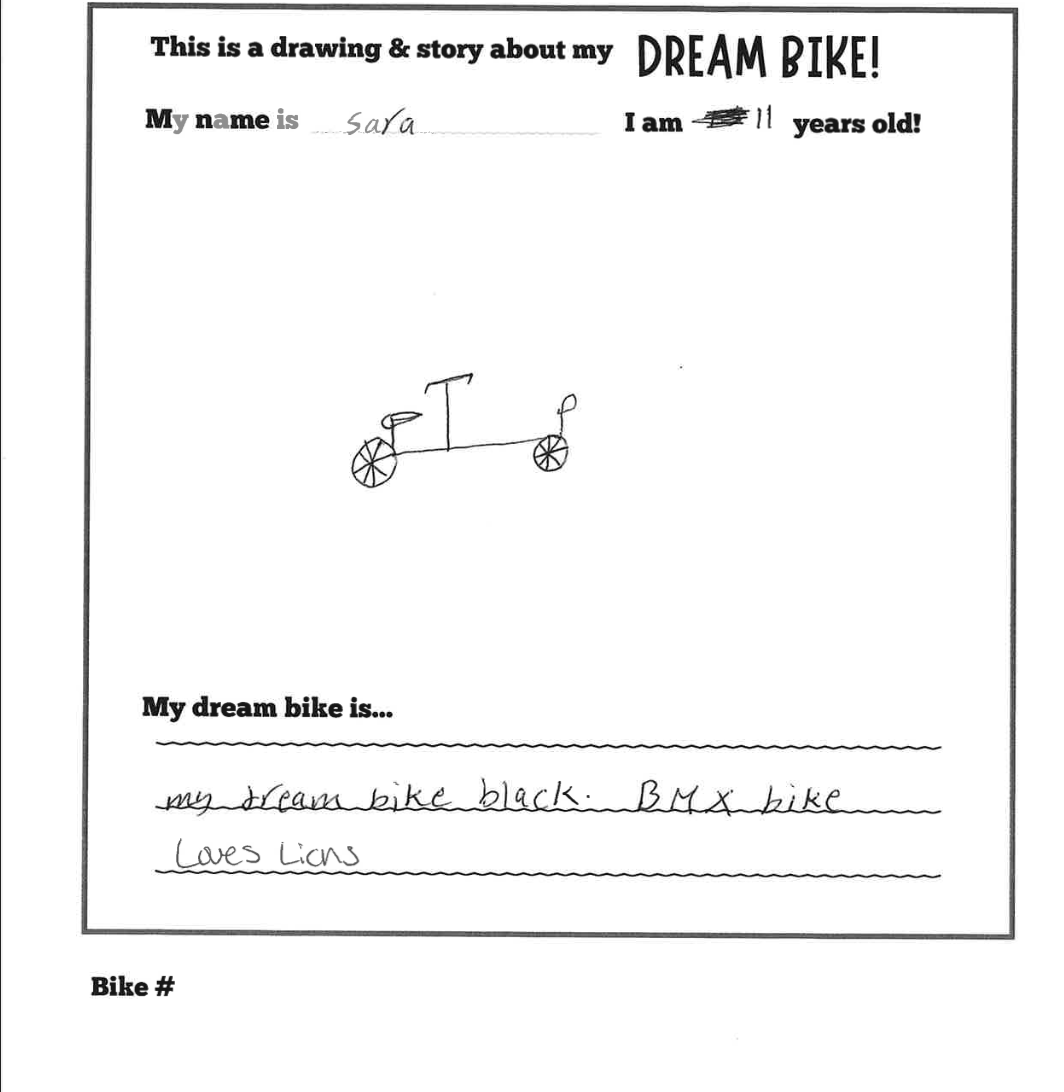 This is a drawing & story about my DREAM BIKE!
My name is Sara I am 11 years old!
My dream bike is...
my dream bike black. BMX bike
Loves Lions
Bike #